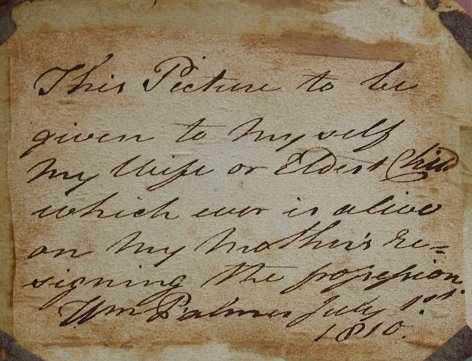 This Picture to be
given to My self
My Wife or Eldest Child
which ever is alive
on My Mother's re=
signing the possession
Wm Palmer July 1st.
1810.